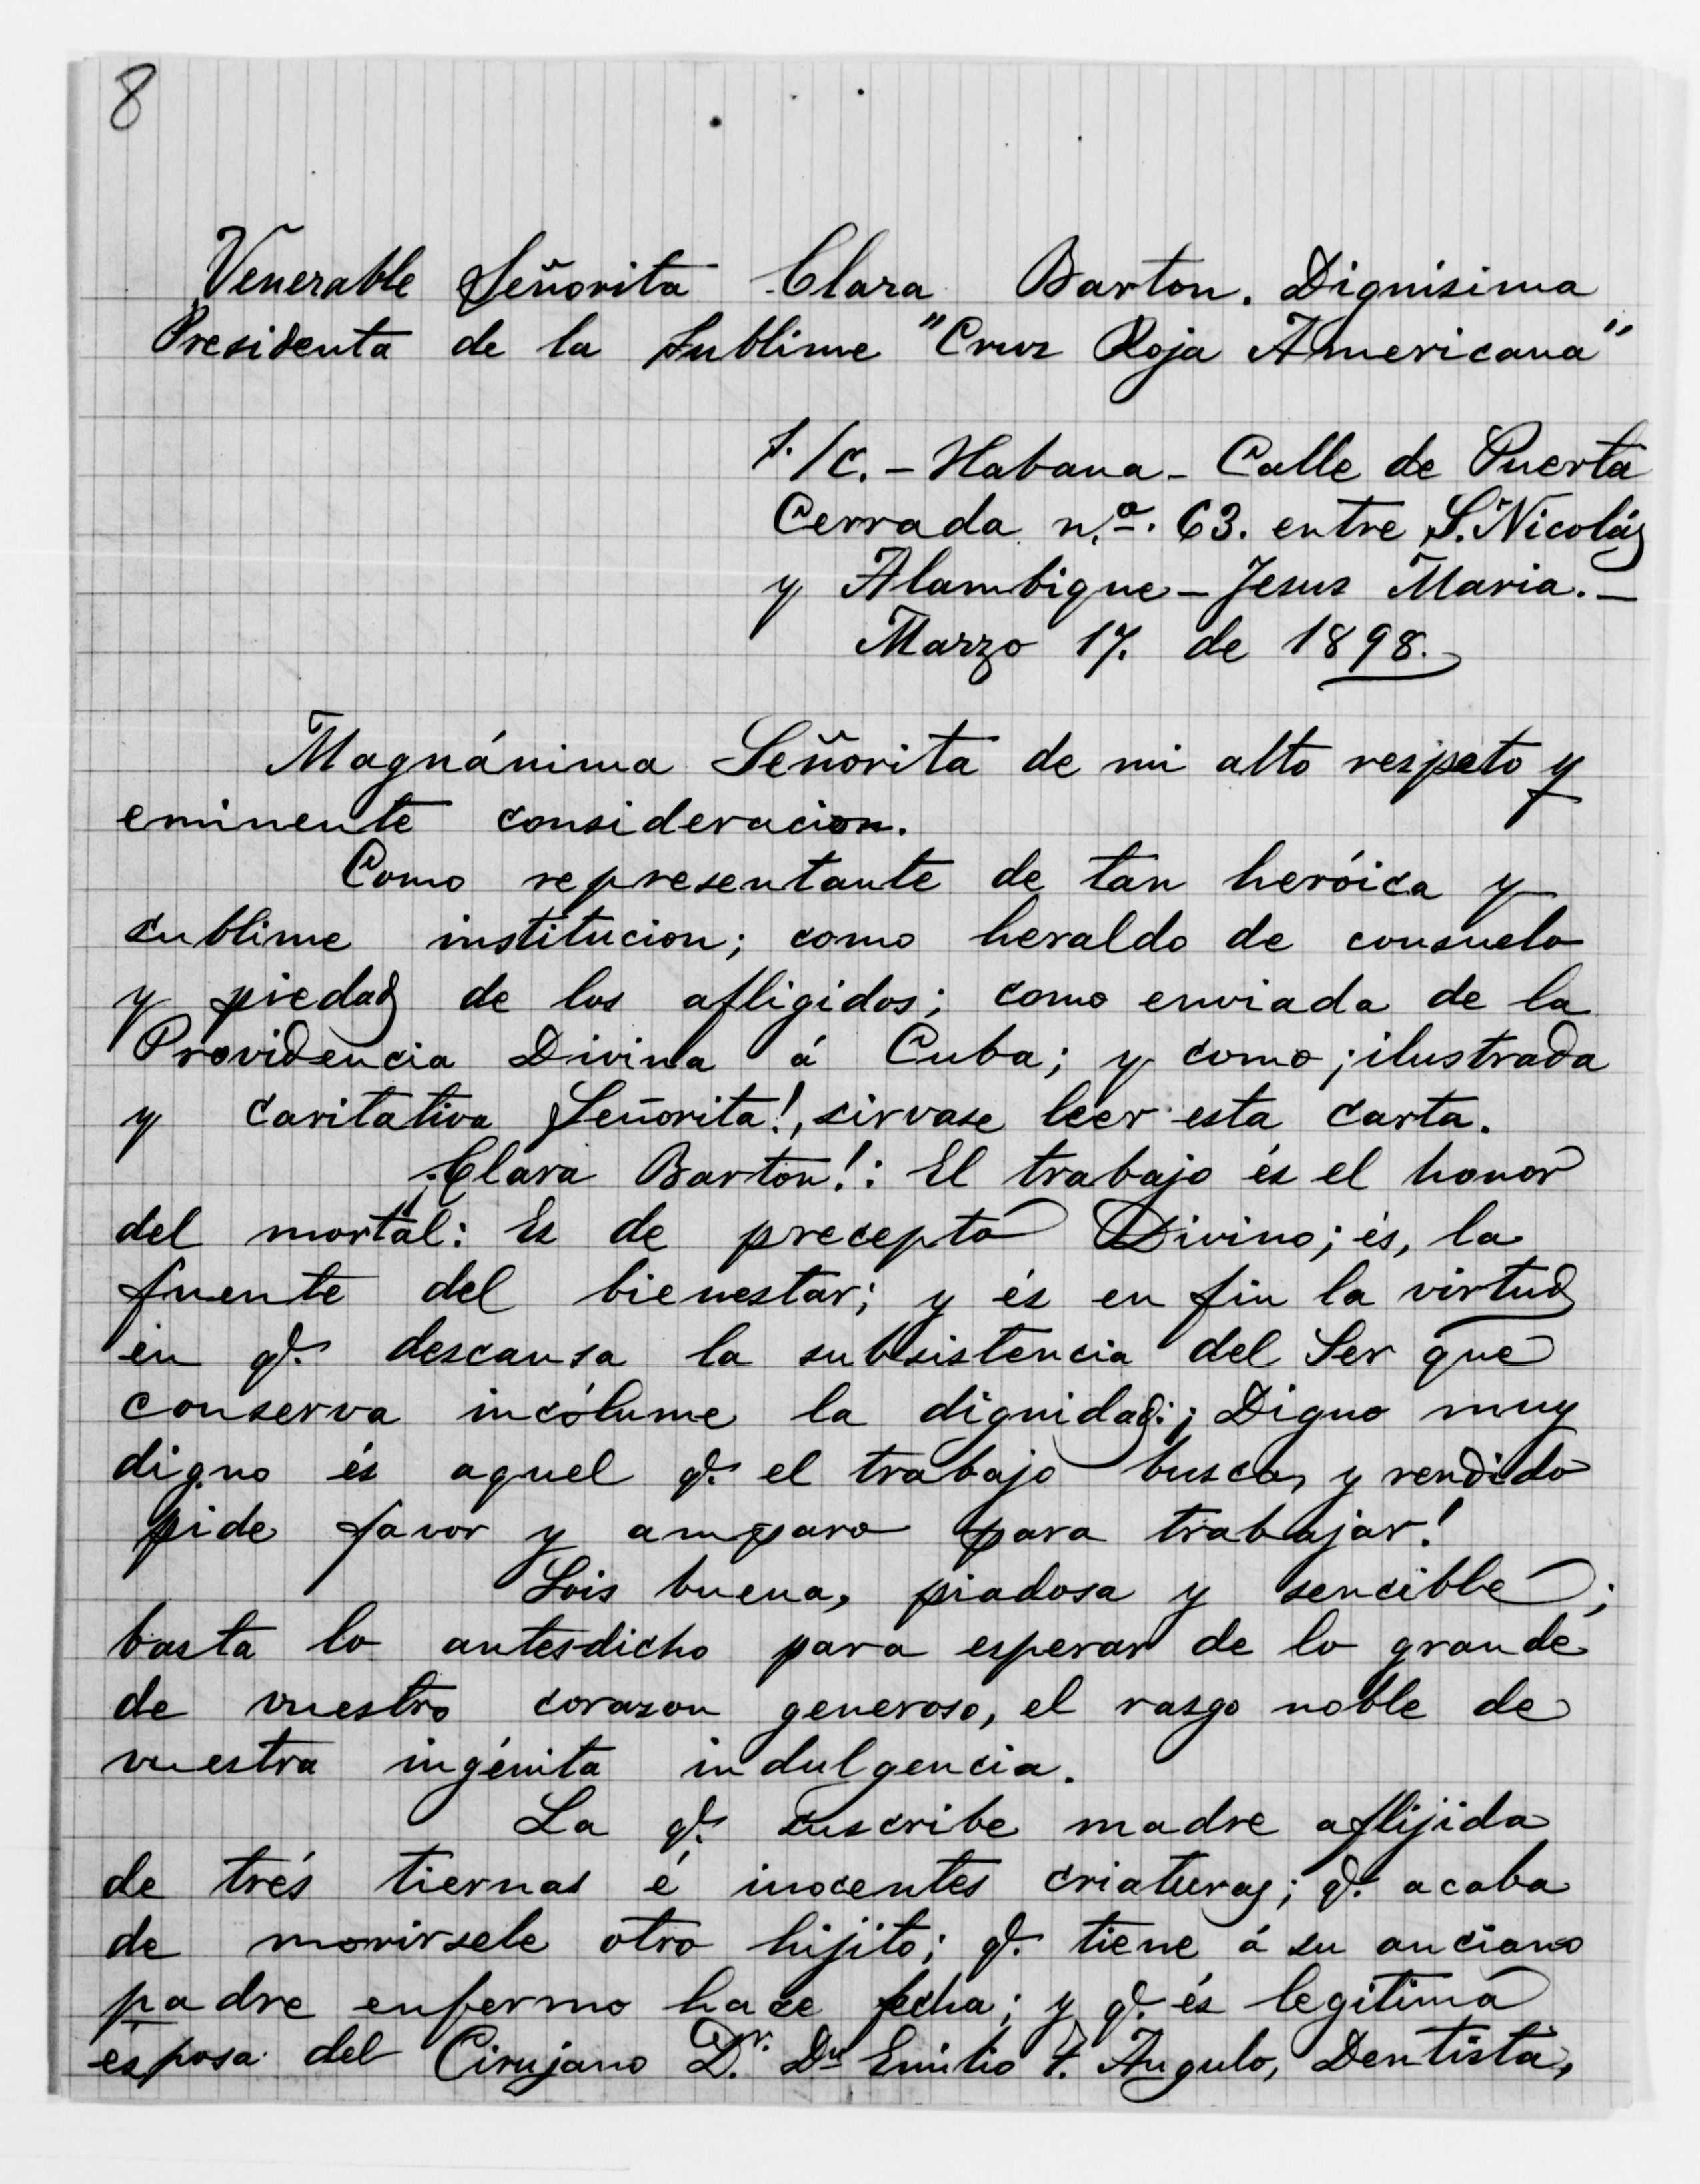 8
Venerable Señorita Clara Barton. Dignisima
Presidenta de la sublime "Cruz Roja Americana"
S./C. - Habana - Calle de Puerta
Cerrada n.º 63. entre S. Nicolás
y Alambique - Jesus Maria. -
Marzo 17. de 1898.
Magnánima Señorita de mi alto respeto y
eminente consideracion.
Como representante de tan heróica y
sublime institucion; como heraldo de consuelo
y piedad de los afligidos; como enviada de la
Providencia Divina á Cuba; y como ¡ilustrada
y caritativa Señorita!, sirvase leer esta carta.
¡Clara Barton!: El trabajo és el honor
del mortal: Es de precepto Divino; és, la
fuente del bienestar; y és en fin la virtud
en q.e descansa la subsistencia del Ser que
conserva incólume la dignidad: ¡Digno muy
digno és aquel q.e el trabajo busca, y rendido
pide favor y amparo para trabajar!
Sois buena, piadosa y sencible;
basta lo antesdicho para esperar de lo grande
de vuestro corazon generoso, el rasgo noble de
vuestra ingénita indulgencia.
La q.e suscribe madre aflijida
de trés tiernas é inocentes criaturas; q.e acaba
de morirsele otro hijito; q.e tiene á su anciano
padre enfermo hace fecha; y q.e és legitima
esposa del Cirujano D.r D.n Emilio F. Angulo, Dentista,